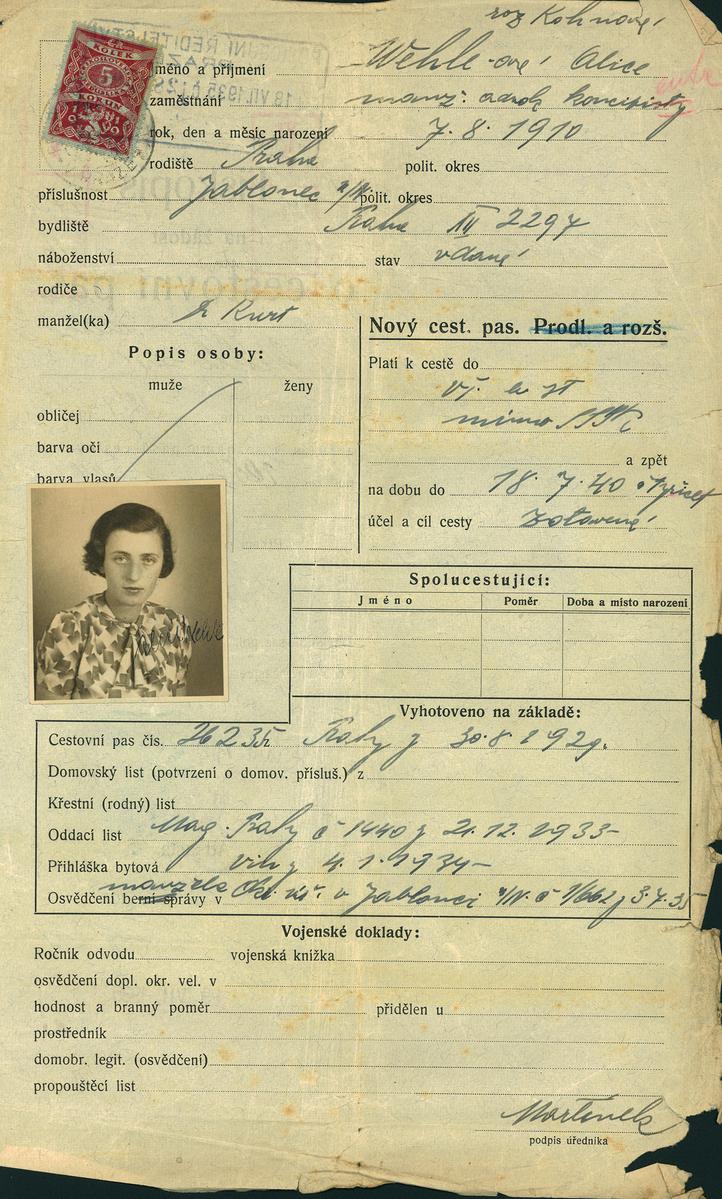 roz Kohnová
jméno a příjmení Wehle-ová Alice
zaměstnání manž. advok. koncipisty
rok, den a měsíc narození 7. 8. 1910
rodiště Praha polit. okres
příslušnost Jablonec n/N. polit. okres
bydliště Praha XII 2297
náboženství stav vdaná
rodiče
manžel(ka) Kurt
Nový cest. pas. Prodl. a rozš.
Popis osoby:
muže ženy
obličej
barva očí
barva vlasů
Platí k cestě do
vš. e st
mimo SSSR
a zpět
na dobu do 18. 7. 40
účel a cíl cesty zotavená
Spolucestující:
Jméno Poměr Doba a místo narození
Vyhotoveno na základě:
Cestovní pas čís. 26235 Prahy z 30. 8. 1929.
Domovský list (potvrzení o domov. přísluš.) z
Křestní (rodný) list
Oddací list Mag. Prahy č 1440 z 21. 12. 1933
Přihláška bytová z 4. 1. 1934
manžela
Osvědčení berní správy v Okr. úř. v Jablonci n/N. č 1/662 z 3. 7. 35
Vojenské doklady:
Ročník odvodu vojenská knížka
osvědčení dopl. okr. vel. v
hodnost a branný poměr přidělen u
prostředník
domobr. legit. (osvědčení)
propouštěcí list
Martínek
podpis úředníka
KOLEK
5
KORUN